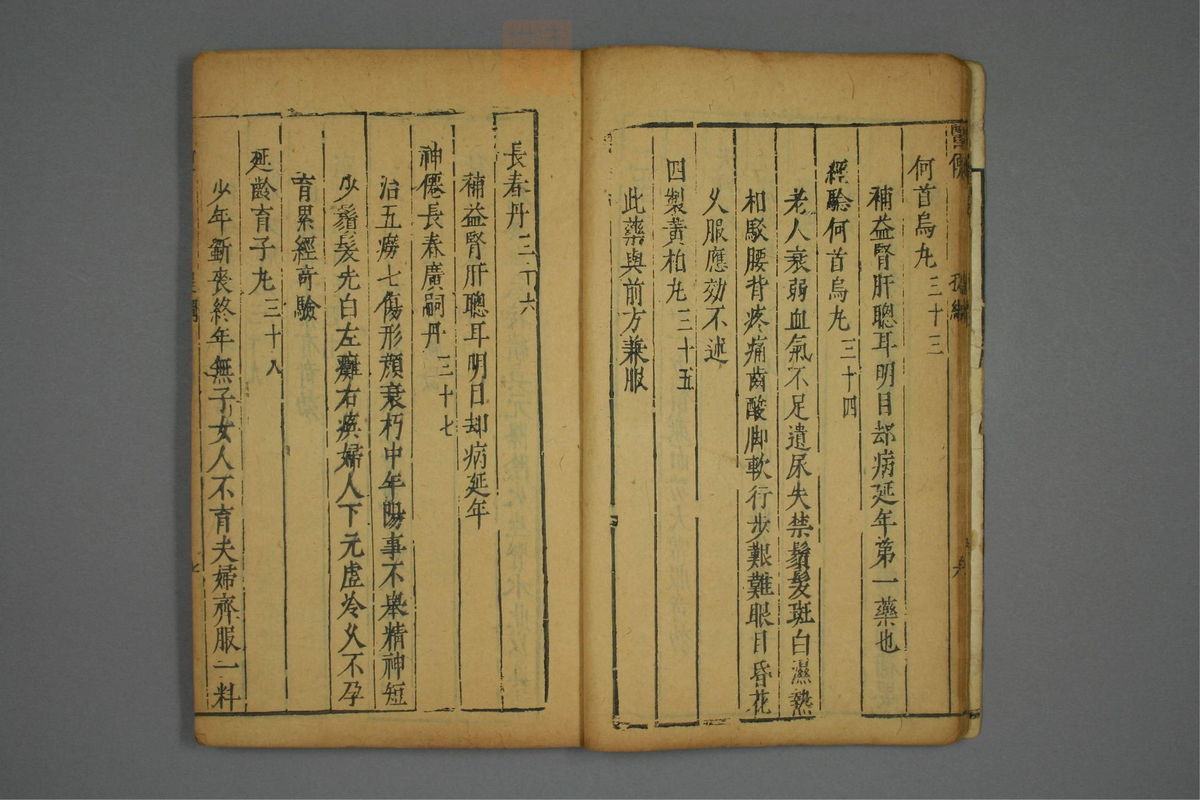 何首烏丸三十三
補益腎肝聰耳明目却病延年第一藥也
經驗何首烏丸三十四
老人衰弱血氣不足遺尿失禁鬚髮斑白濕熱
相駁腰背疼痛齒酸脚軟行步艱難眼目昏花
乆服應効不述
四製黄柏丸三十五
此藥與前方兼服
長春丹三十六
補益腎肝聰耳明目却病延年
神僊長春廣嗣丹三十七
治五癆七傷形顏衰朽中年陽事不舉精神短
少鬚髮先白左癱右瘓婦人下元虛冷乆不孕
育累經奇驗
延齡育子丸三十八
少年斵喪終年無子女人不育夫婦齊服一料